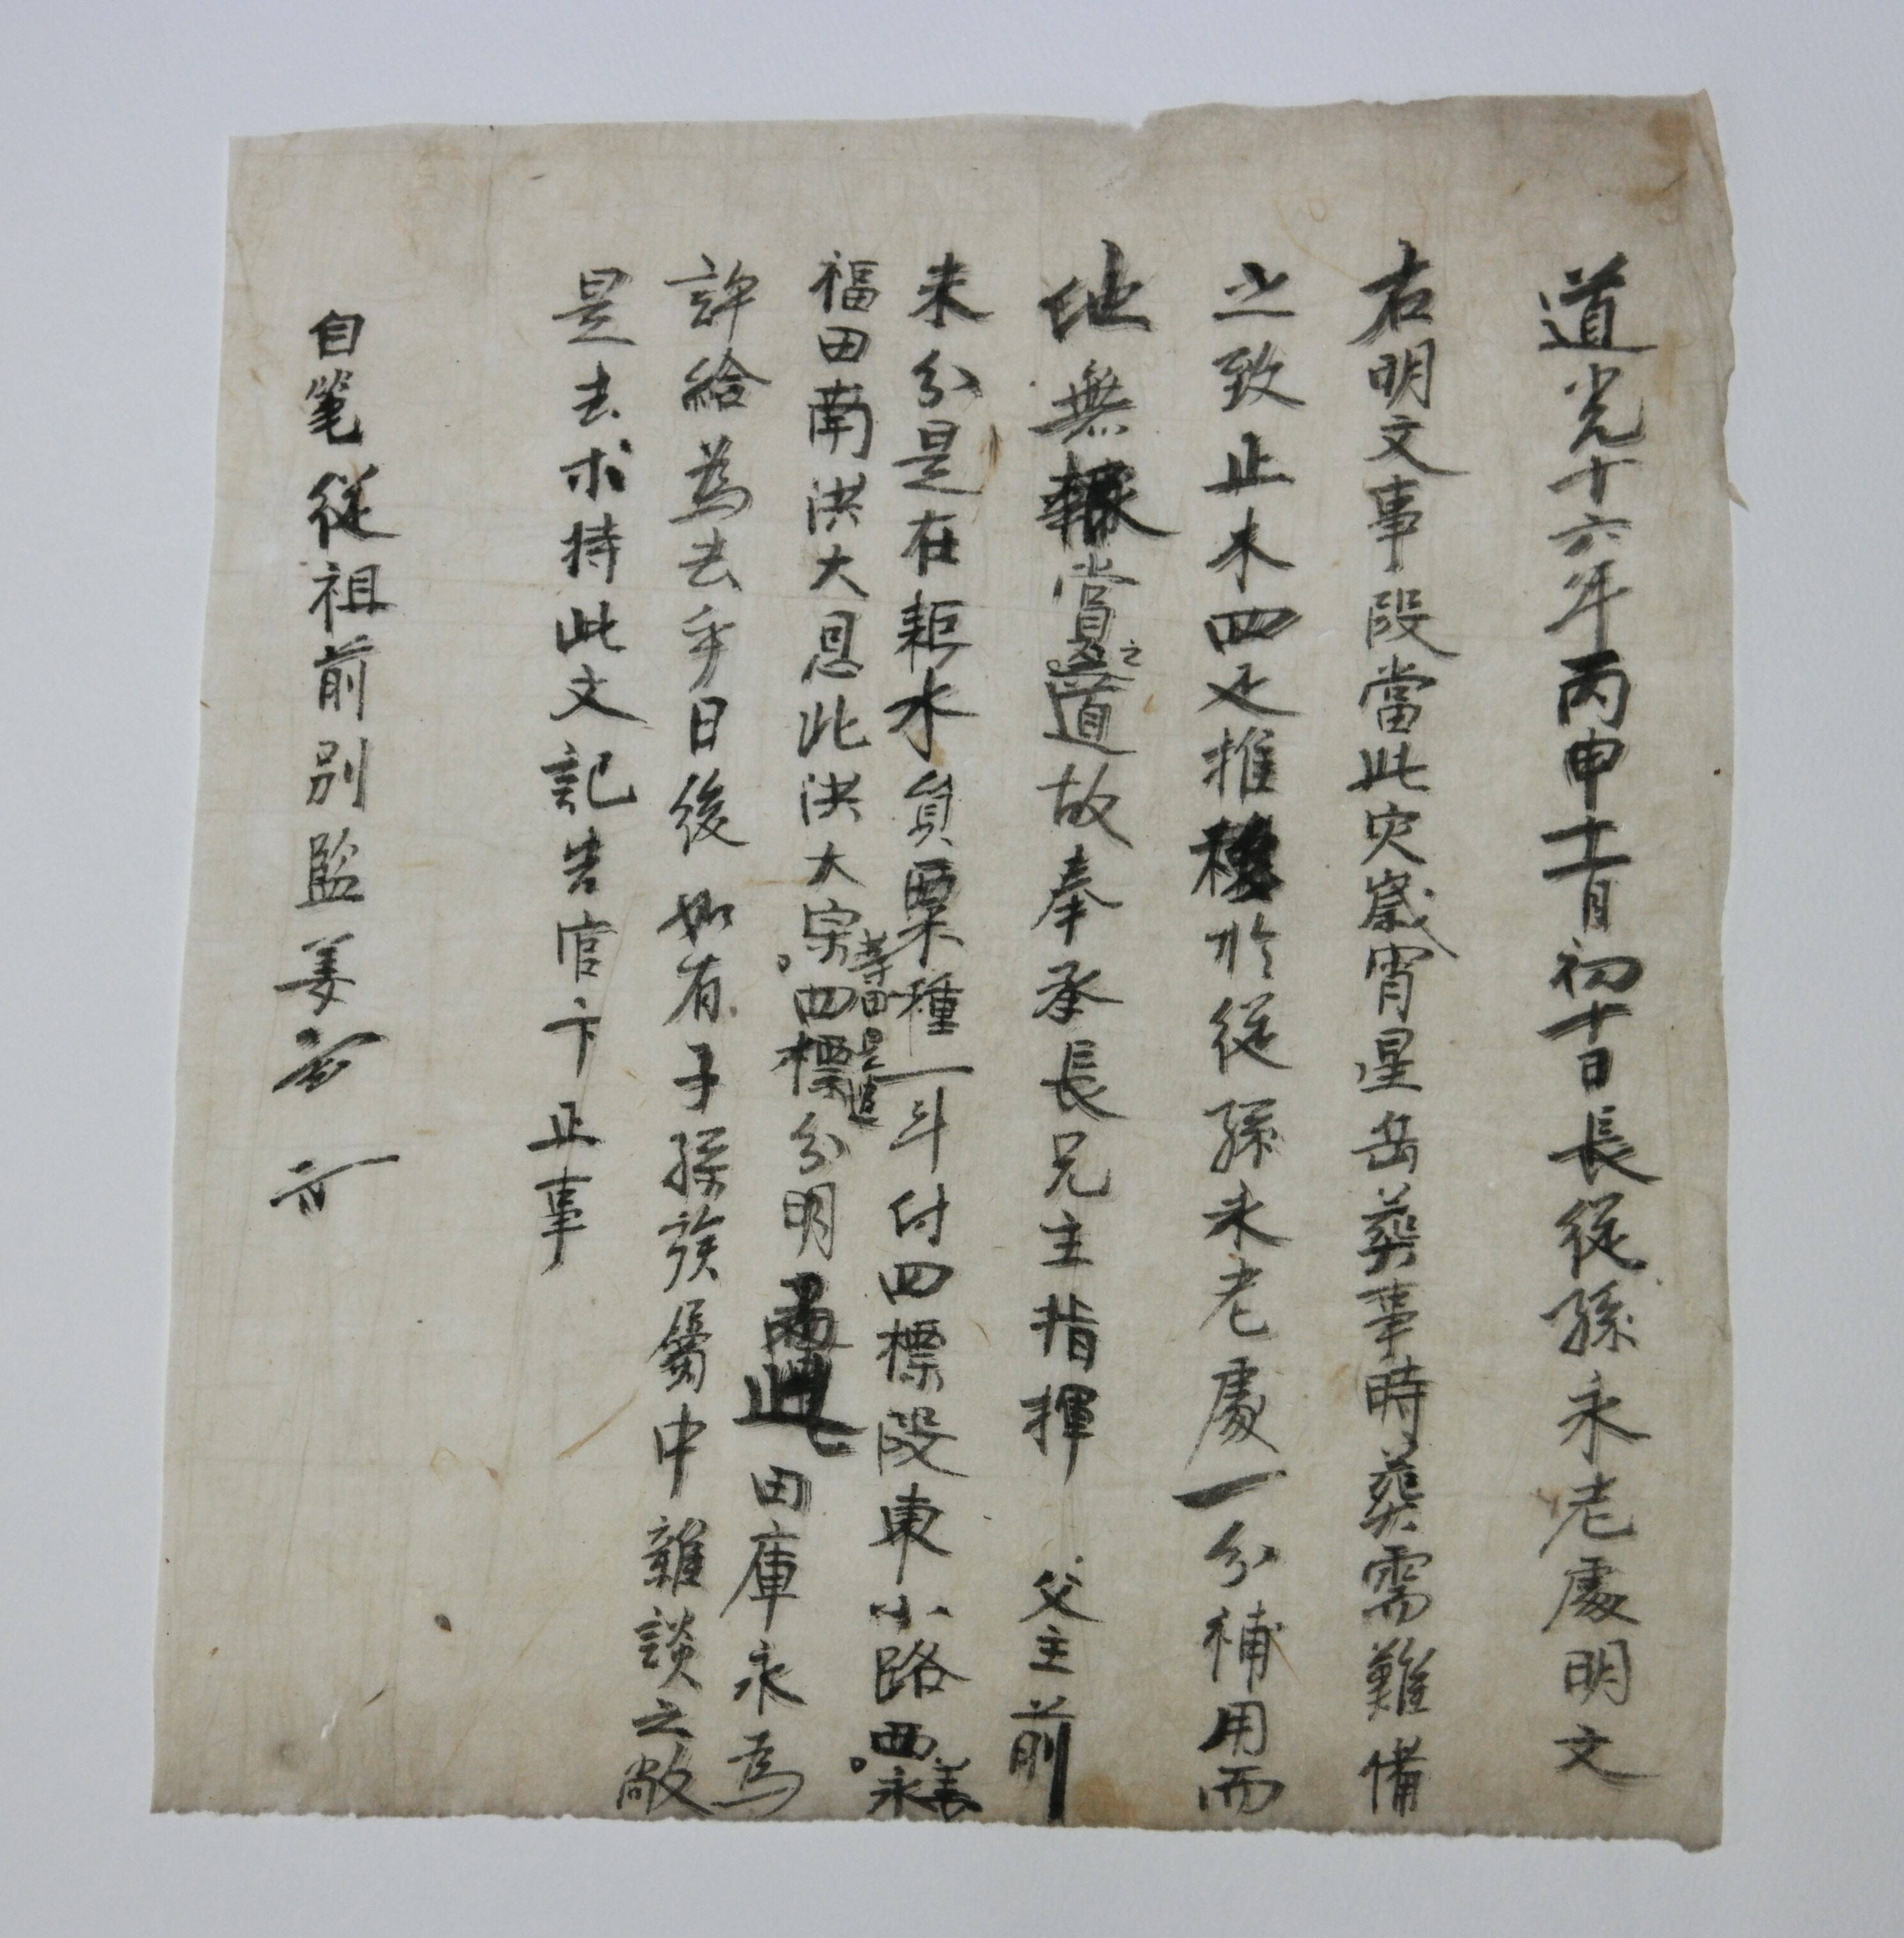 道光十六年丙申十二月初十日長從孫永老處明文
右明文事段當此灾歲宵星岳葬事時葬需難備
之致止木四疋推移於從孫永老處一分補用而
他無報賞之道故奉承長兄主指揮 父主前
未分是在耟水員粟種一斗付四標段東小路西姜永
福田南洪大恩此洪大宗等田是遣四標分明 此田庫永為
許給為去乎日後如有子孫族屬中雜談之敝
是去求持此文記告官卞正事
自筆從祖前別監姜